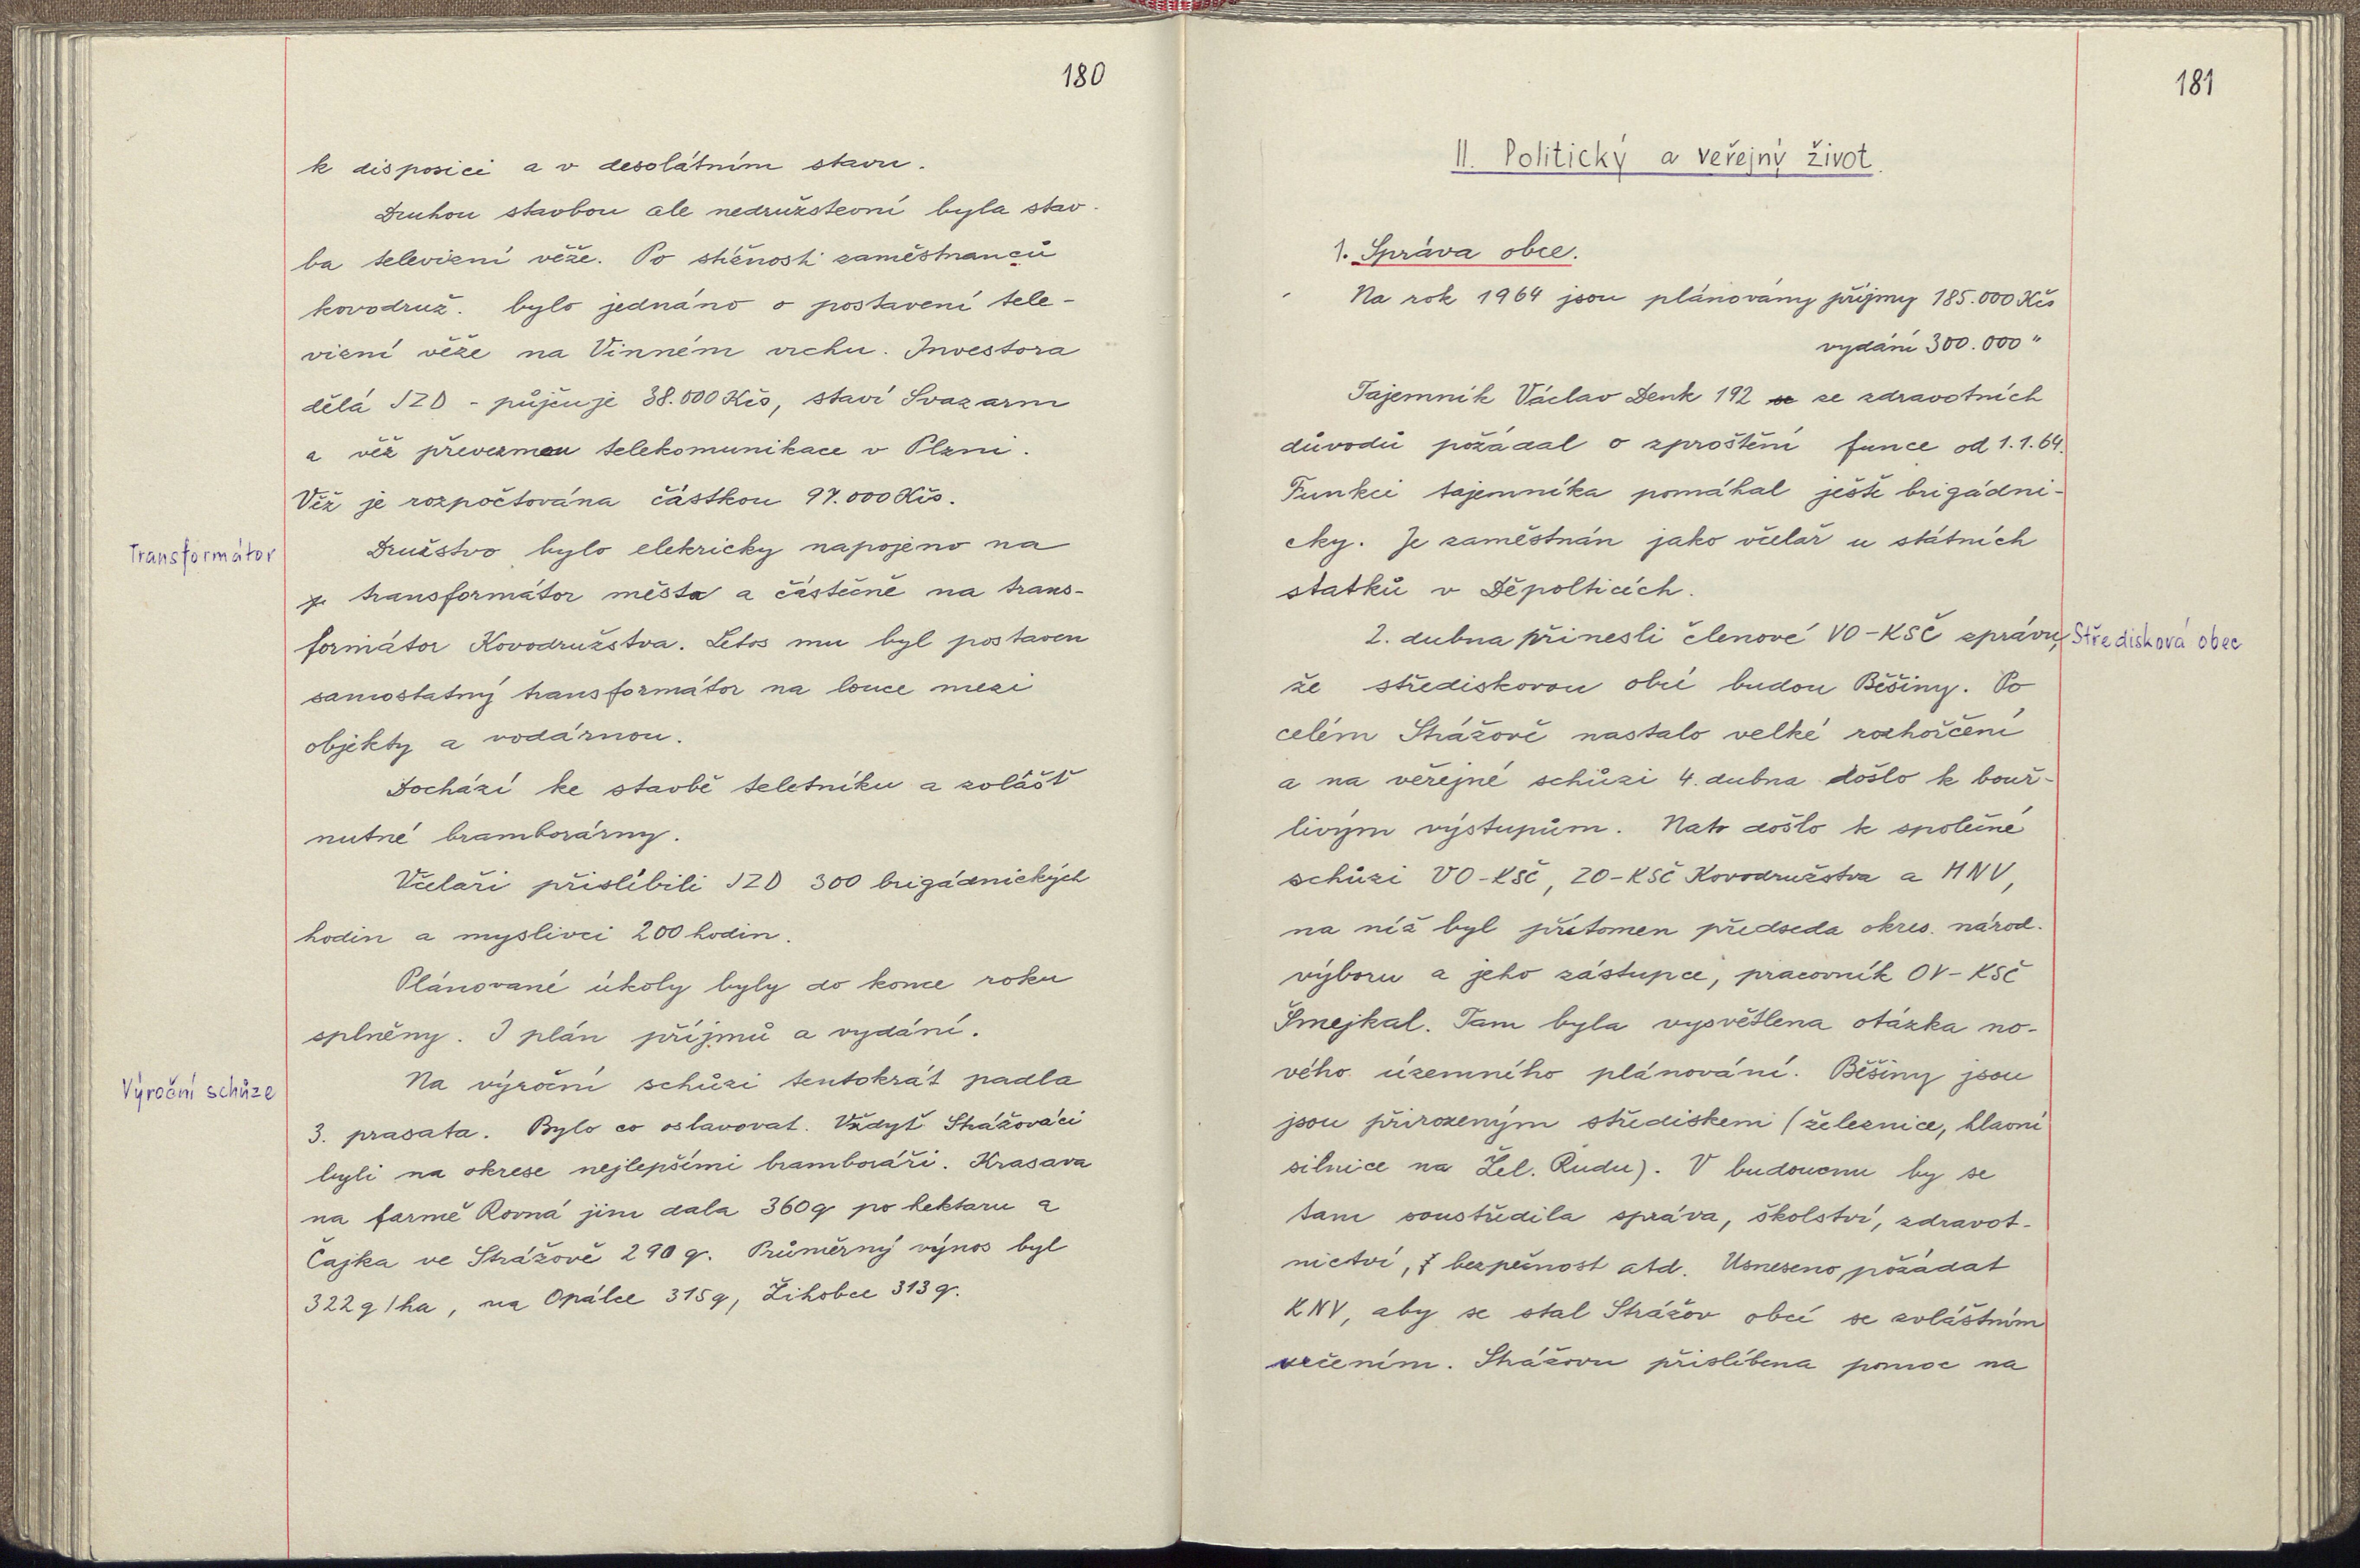 180
k disposici a v desolátním stavu.
Druhou stavbou ale nedružstevní byla stav-
ba televizní věže. Po stížnosti zaměstnanců
kovodruž. bylo jednáno o postavení tele-
vizní věže na Vinném vrchu. Investora
dělá JZD - půjčuje 38.000 Kčs, staví Svazarm
a věž převezmou telekomunikace v Plzni.
Věž je rozpočtována částkou 97.000 Kčs.
Transformátor
Družstvo bylo elekricky napojeno na
transformátor města a částečně na trans-
formátor Kovodružstva. Letos mu byl postaven
samostatný transformátor na louce mezi
objekty a vodárnou.
Dochází ke stavbě teletníku a zvlášť
nutné bramborárny.
Včelaři přislíbili JZD 300 brigádnických
hodin a myslivci 200 hodin.
Plánované úkoly byly do konce roku
splněny. I plán příjmů a vydání.
Výroční schůze
Na výroční schůzi tentokrát padla
3. prasata. Bylo co oslavovat. Vždyť Strážováci
byli na okrese nejlepšími bramboráři. Krasava
na farmě Rovná jim dala 360 q po hektaru a
Čajka ve Strážově 290 q. Průměrný výnos byl
322 q/ha, na Opálce 315 q, Žihobce 313 q.
181
II. Politický a veřejný život
1. Správa obce.
Na rok 1964 jsou plánovány příjmy 185.000 Kčs
vydání 300.000 "
Tajemník Václav Denk 192 ze zdravotních
důvodů požádal o zproštění funce od 1.1.64.
Funkci tajemníka pomáhal ještě brigádni-
cky. Je zaměstnán jako včelař u státních
statků v Děpolticích.
2. dubna přinesli členové VO-KSČ zprávu,
Středisková obec
že střediskovou obcí budou Běšiny. Po
celém Strážově nastalo velké rozhořčení
a na veřejné schůzi 4. dubna došlo k bouř-
livým výstupům. Nato došlo k společné
schůzi VO-KSČ, ZO-KSČ Kovodružstva a MNV,
na níž byl přítomen předseda okres. národ.
výboru a jeho zástupce, pracovník OV-KSČ
Šmejkal. Tam byla vysvětlena otázka no-
vého územního plánování. Běšiny jsou
jsou přirozeným střediskem (železnice, hlavní
silnice na Žel. Rudu). V budoucnu by se
tam soustředila správa, školství, zdravot-
nictví, bezpečnost atd. Usneseno požádat
KNV, aby se stal Strážov obcí se zvláštním
určením. Strážovu přislíbena pomoc na